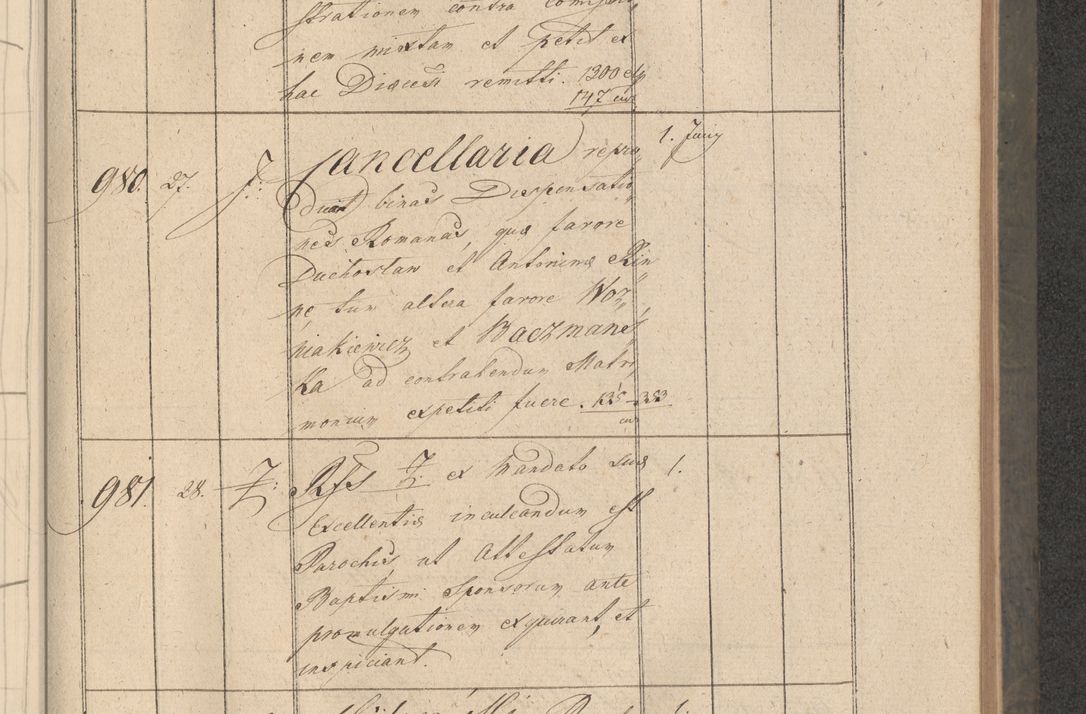 strationem contra
nem mixtam et petit ex
hac Dioecesi remitti. 1200
147
980. 27. J: Cancellaria repro 1. Junij
ducat binas Dispensatio
nes Romanas, qua favore
Duchoslaw et Antonina Rin
pe tum altera favore Woz
niakiewicz et Baczmans
ka ad contrahendum Matri
monium expetiti fuere. 135
981. 28. Z: ex Mandato suae 1.
Excellentiae inculcandum est
Parochis, ut Attestatum
Baptismi Sponsorum ante
promulgationem exquirant, et
inspiciant.